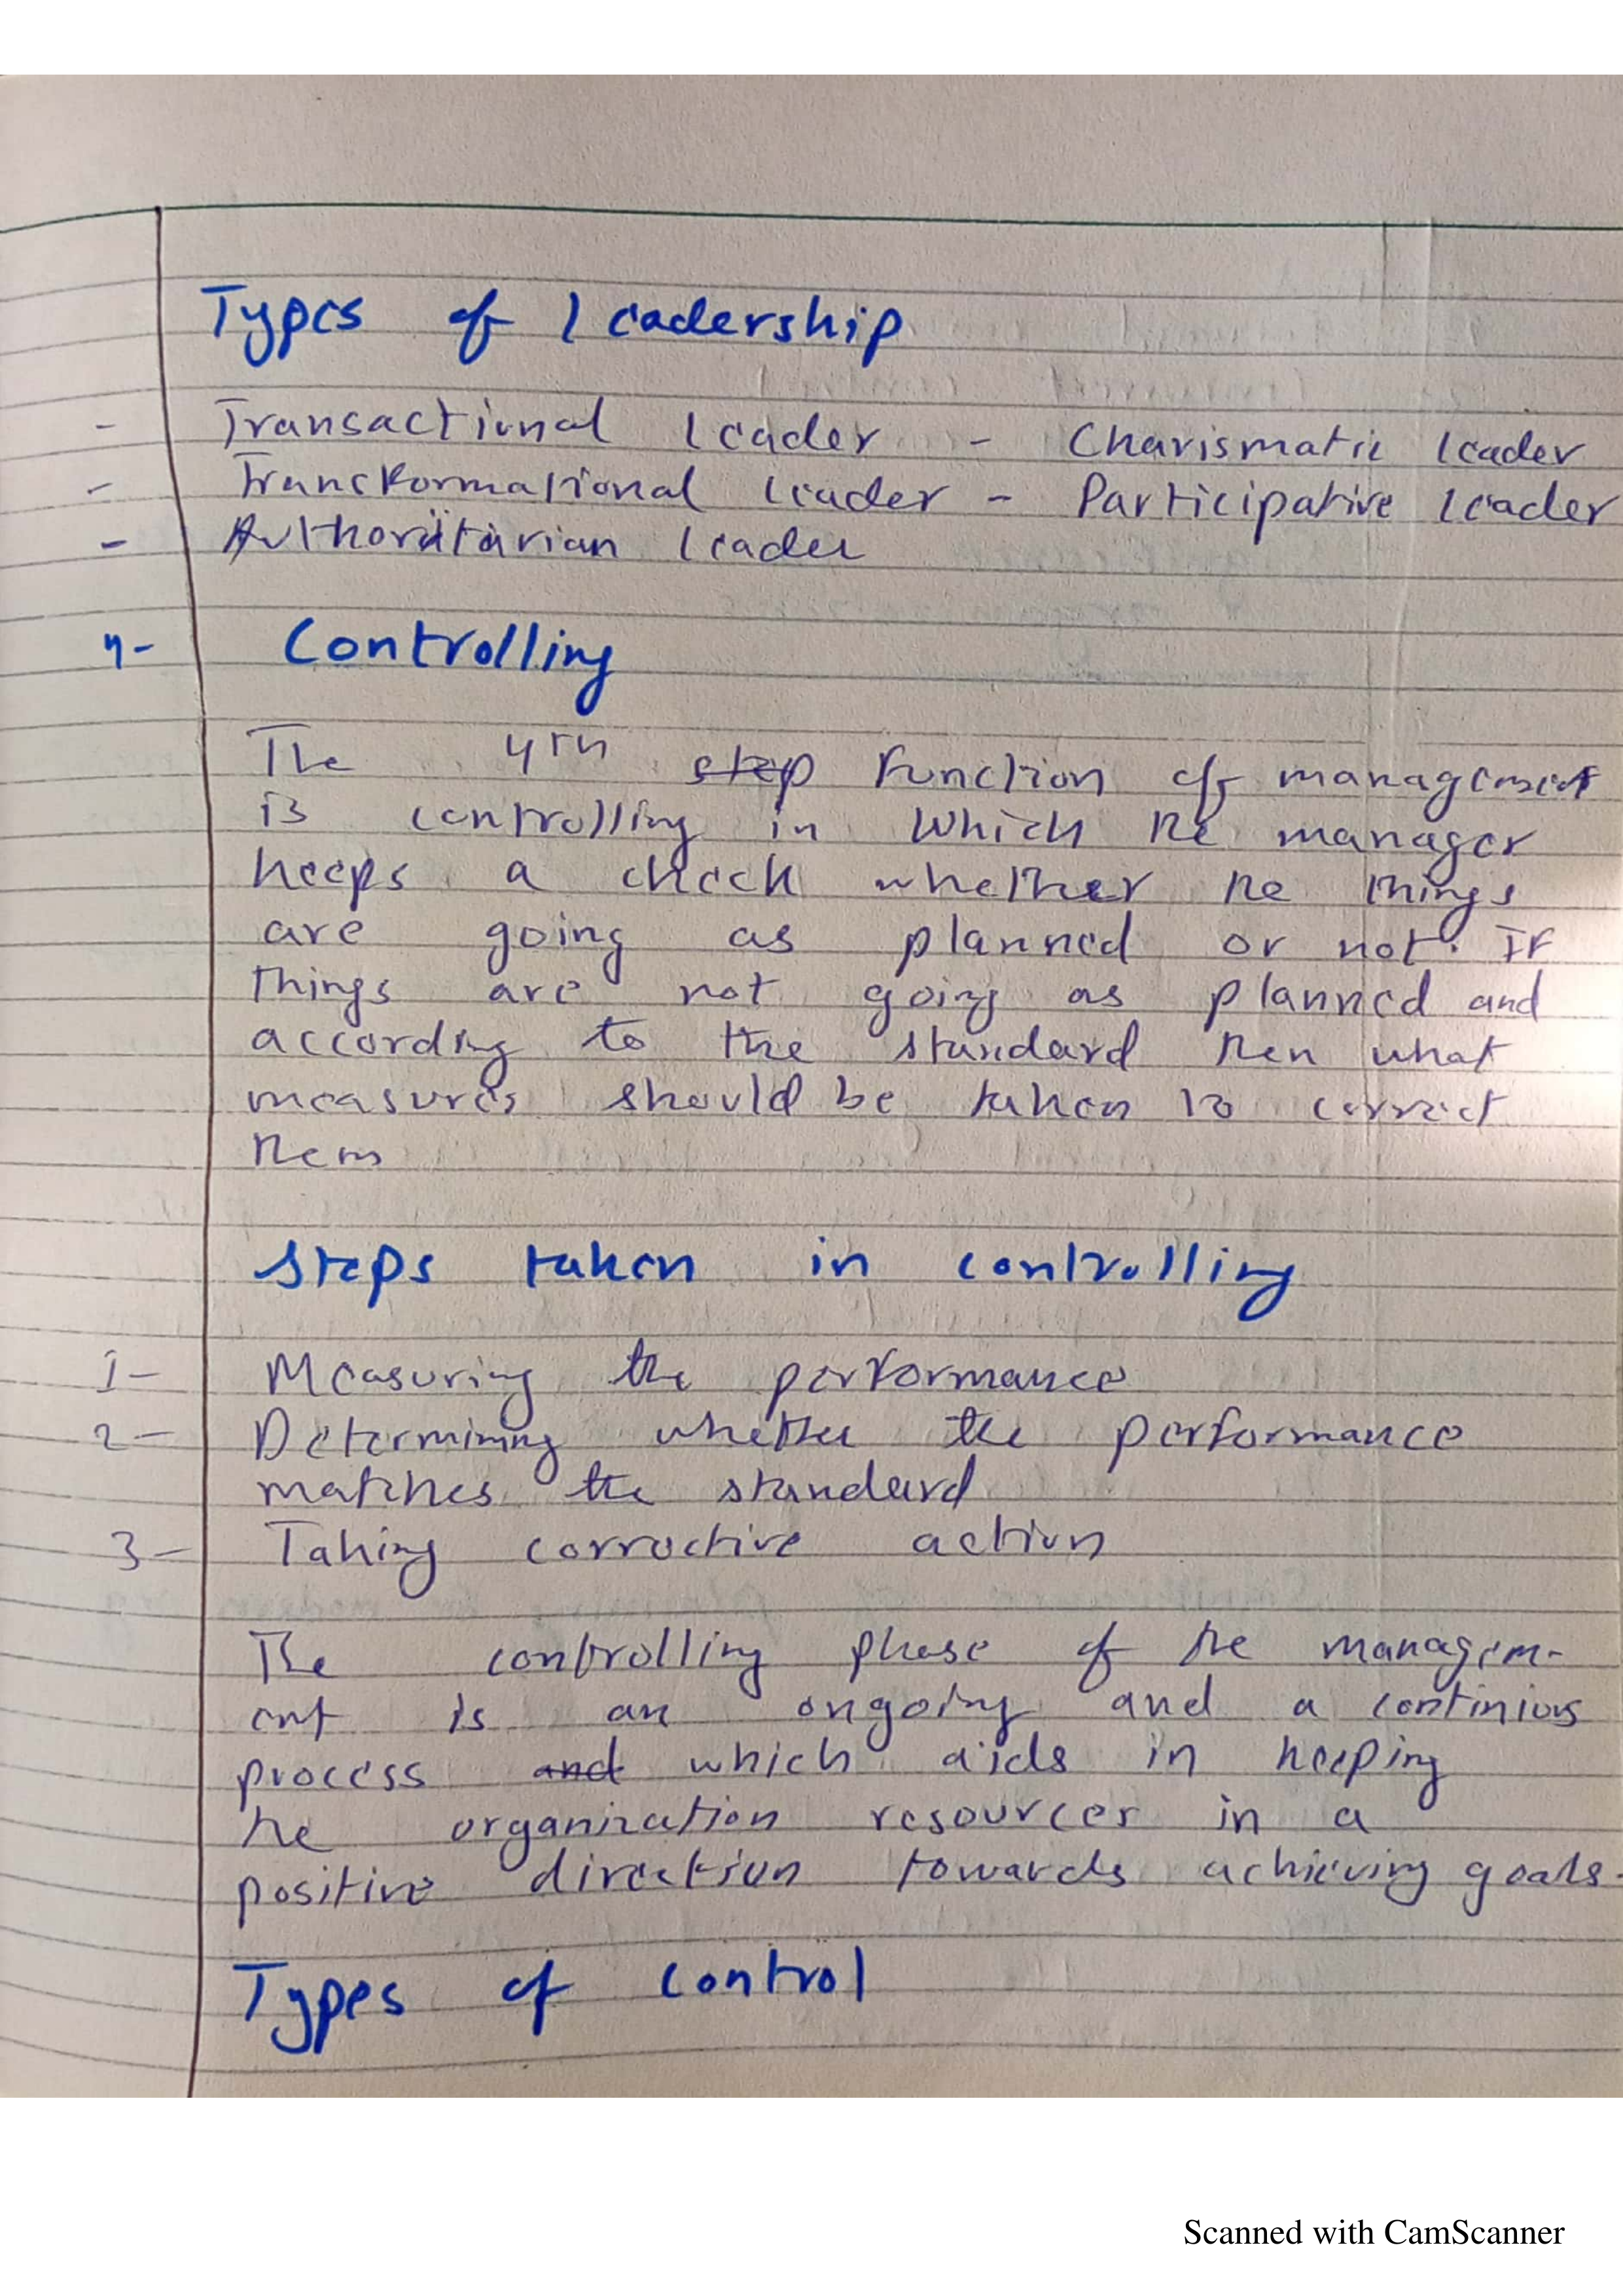 Types of leadership
- Transactional leader - Charismatic leader
- Transformational leader - Participative leader
- Authoritarian leader
4- Controlling
The 4th step function of management
is controlling in which the manager
keeps a check whether the things
are going as planned or not. If
things are not going as planned and
according to the standard then what
measures should be taken to correct
them
Steps taken in controlling
1- Measuring the performance
2- Determining whether the performance
matches the standard
3- Taking corrective action
The controlling phase of the managem-
ent is an ongoing and a continious
process and which aids in keeping
the organization resources in a
positive direction towards achieving goals.
Types of control
Scanned with CamScanner